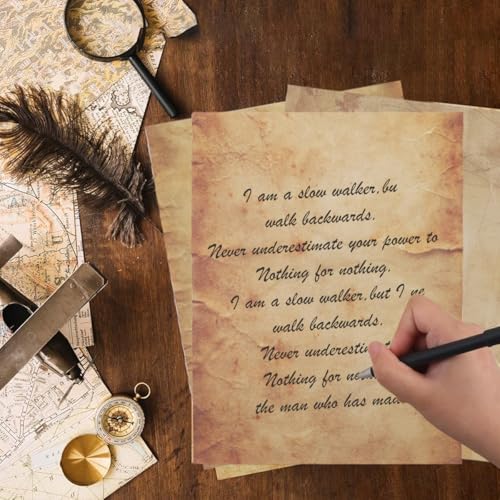 I am a slow walker, bu
walk backwards.
Never underestimate your power to
Nothing for nothing.
I am a slow walker, but I ne
walk backwards.
Never underestim
Nothing for no
the man who has mad